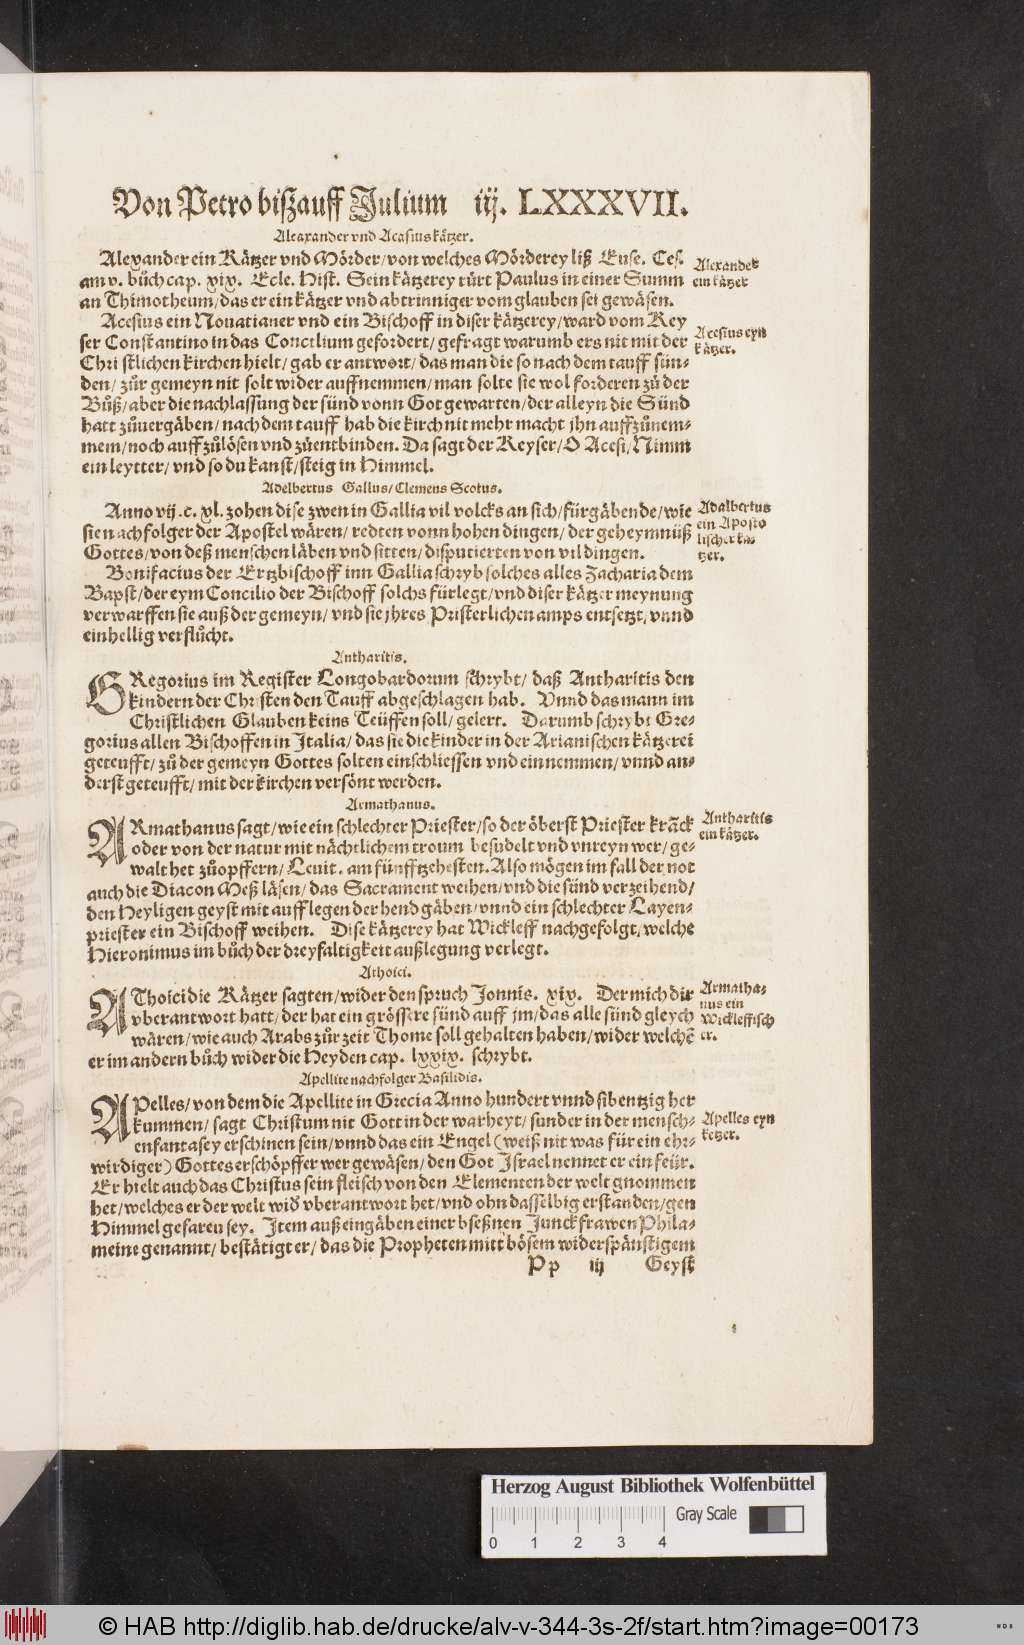 Von Petro bißauff Julium iij. LXXXVII.
Aleaxander vnd Acasius kätzer.
Alexander ein Kätzer vnd Mörder/von welches Mörderey liß Euse. Ces.
am v. bůch cap. xix. Ecle. Hist. Sein kätzerey rürt Paulus in einer Summ
an Thimotheum/das er ein kätzer vnd abtrinniger vom glauben sei gewäsen.
Alexander
ein kätzer
Acesius ein Nouatianer vnd ein Bischoff in diser kätzerey/ward vom Key
ser Constantino in das Concilium gefordert/gefragt warumb ers nit mit der
Christlichen kirchen hielt/gab er antwort/das man die so nach dem tauff sün-
den/zůr gemeyn nit solt wider auffnemmen/man solte sie wol forderen zů der
Bůß/aber die nachlassung der sünd vonn Got gewarten/der alleyn die Sünd
hatt zůuergäben/nach dem tauff hab die kirch nit mehr macht jhn auffzůnem-
mem/noch auff zůlösen vnd zůentbinden. Da sagt der Keyser/O Acesi/Nimm
ein leytter/vnd so du kanst/steig in Himmel.
Acesius eyn
kätzer.
Adelbertus Gallus/Clemens Scotus.
Anno vij.c.xl. zohen dise zwen in Gallia vil volcks an sich/fürgäbende/wie
sie nachfolger der Apostel wären/redten vonn hohen dingen/der geheymnüß
Gottes/von deß menschen läben vnd sitten/disputierten von vil dingen.
Adalbertus
ein Aposto
lischer kä-
tzer.
Bonifacius der Ertzbischoff inn Gallia schryb solches alles Zacharia dem
Bapst/der eym Concilio der Bischoff solchs fürlegt/vnd diser kätzer meynung
verwarffen sie auß der gemeyn/vnd sie jhres Pristerlichen amps entsetzt/vnnd
einhellig verflůcht.
Antharitis.
GRegorius im Register Longobardorum schrybt/daß Antharitis den
kindern der Christen den Tauff abgeschlagen hab. Vnnd das mann im
Christlichen Glauben keins Teüffen soll/gelert. Darumb schrybt Gre-
gorius allen Bischoffen in Italia/das sie die kinder in der Arianischen kätzerei
geteufft/zů der gemeyn Gottes solten einschliessen vnd einnemmen/vnnd an-
derst geteufft/mit der kirchen versönt werden.
Armathanus.
ARmathanus sagt/wie ein schlechter Priester/so der öberst Priester kräck
oder von der natur mit nächtlichem troum besudelt vnd vnreyn wer/ge-
walt het zůopffern/Leuit. am fünfftzehesten. Also mögen im fall der not
auch die Diacon Meß läsen/das Sacrament weihen/vnd die sünd verzeihend/
den Heyligen geyst mit auff legen der hend gäben/vnnd ein schlechter Layen-
priester ein Bischoff weihen. Dise kätzerey hat Wickleff nachgefolgt/welche
Hieronimus im bůch der dreyfaltigkeit außlegung verlegt.
Antharitis
ein kätzer.
Athoici.
AThoici die Kätzer sagten/wider den spruch Jonnis. xix. Der mich dir
vberantwort hatt/der hat ein grössere sünd auff jm/das alle sünd gleych
wären/wie auch Arabs zůr zeit Thome soll gehalten haben/wider welchẽ
er im andern bůch wider die Heyden cap. lxxix. schrybt.
Armatha-
nus ein
Wickleffisch
er.
Apellite nachfolger Basilidis.
APelles/von dem die Apellite in Grecia Anno hundert vnnd sibentzig her
kummen/sagt Christum nit Gott in der warheyt/sunder in der mensch-
enfantasey erschinen sein/vnnd das ein Engel (weiß nit was für ein ehr-
wirdiger) Gottes erschöpffer wer gewäsen/den Got Israel nennet er ein feür.
Er hielt auch das Christus sein fleisch von den Elementen der welt gnommen
het/welches er der welt wid͛ vberantwort het/vnd ohn dasselbig erstanden/gen
Himmel gefaren sey. Item auß eingäben einer bseßnen Junckfrawen Phila-
meine genannt/bestätigt er/das die Propheten mitt bösem widerspänstigem
Apelles eyn
ketzer.
Pp iij Geyst
Herzog August Bibliothek Wolfenbüttel
Gray Scale
0 1 2 3 4
© HAB http://diglib.hab.de/drucke/alv-v-344-3s-2f/start.htm?image=00173